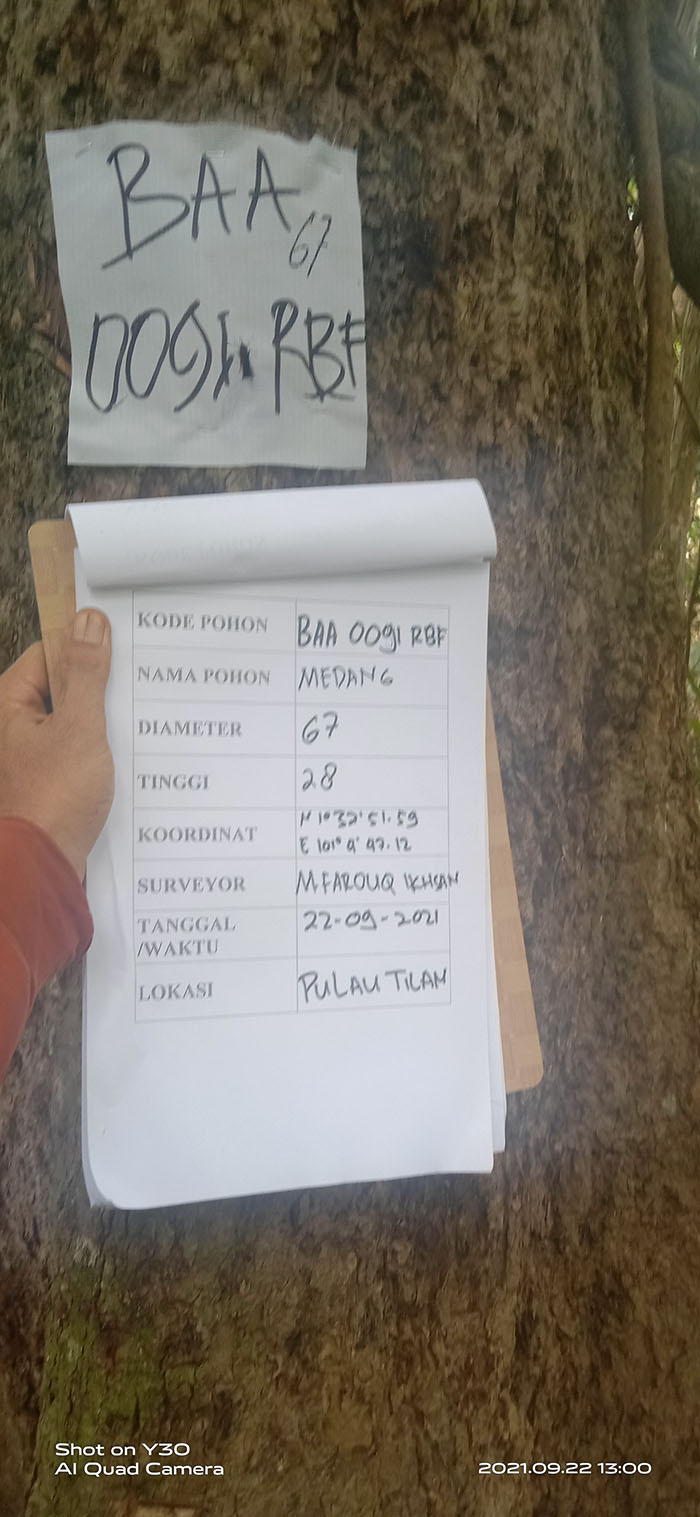 BAA
67
0091. RBF
KODE POHON BAA 0091 RBF
NAMA POHON MEDANG
DIAMETER 67
TINGGI 28
KOORDINAT N 1° 32' 51.59
E 101° 9' 47.12
SURVEYOR M FAROUQ IKHSAN
TANGGAL 22-09-2021
/WAKTU
LOKASI PULAU TILAN
Shot on Y30
AI Quad Camera
2021.09.22 13:00